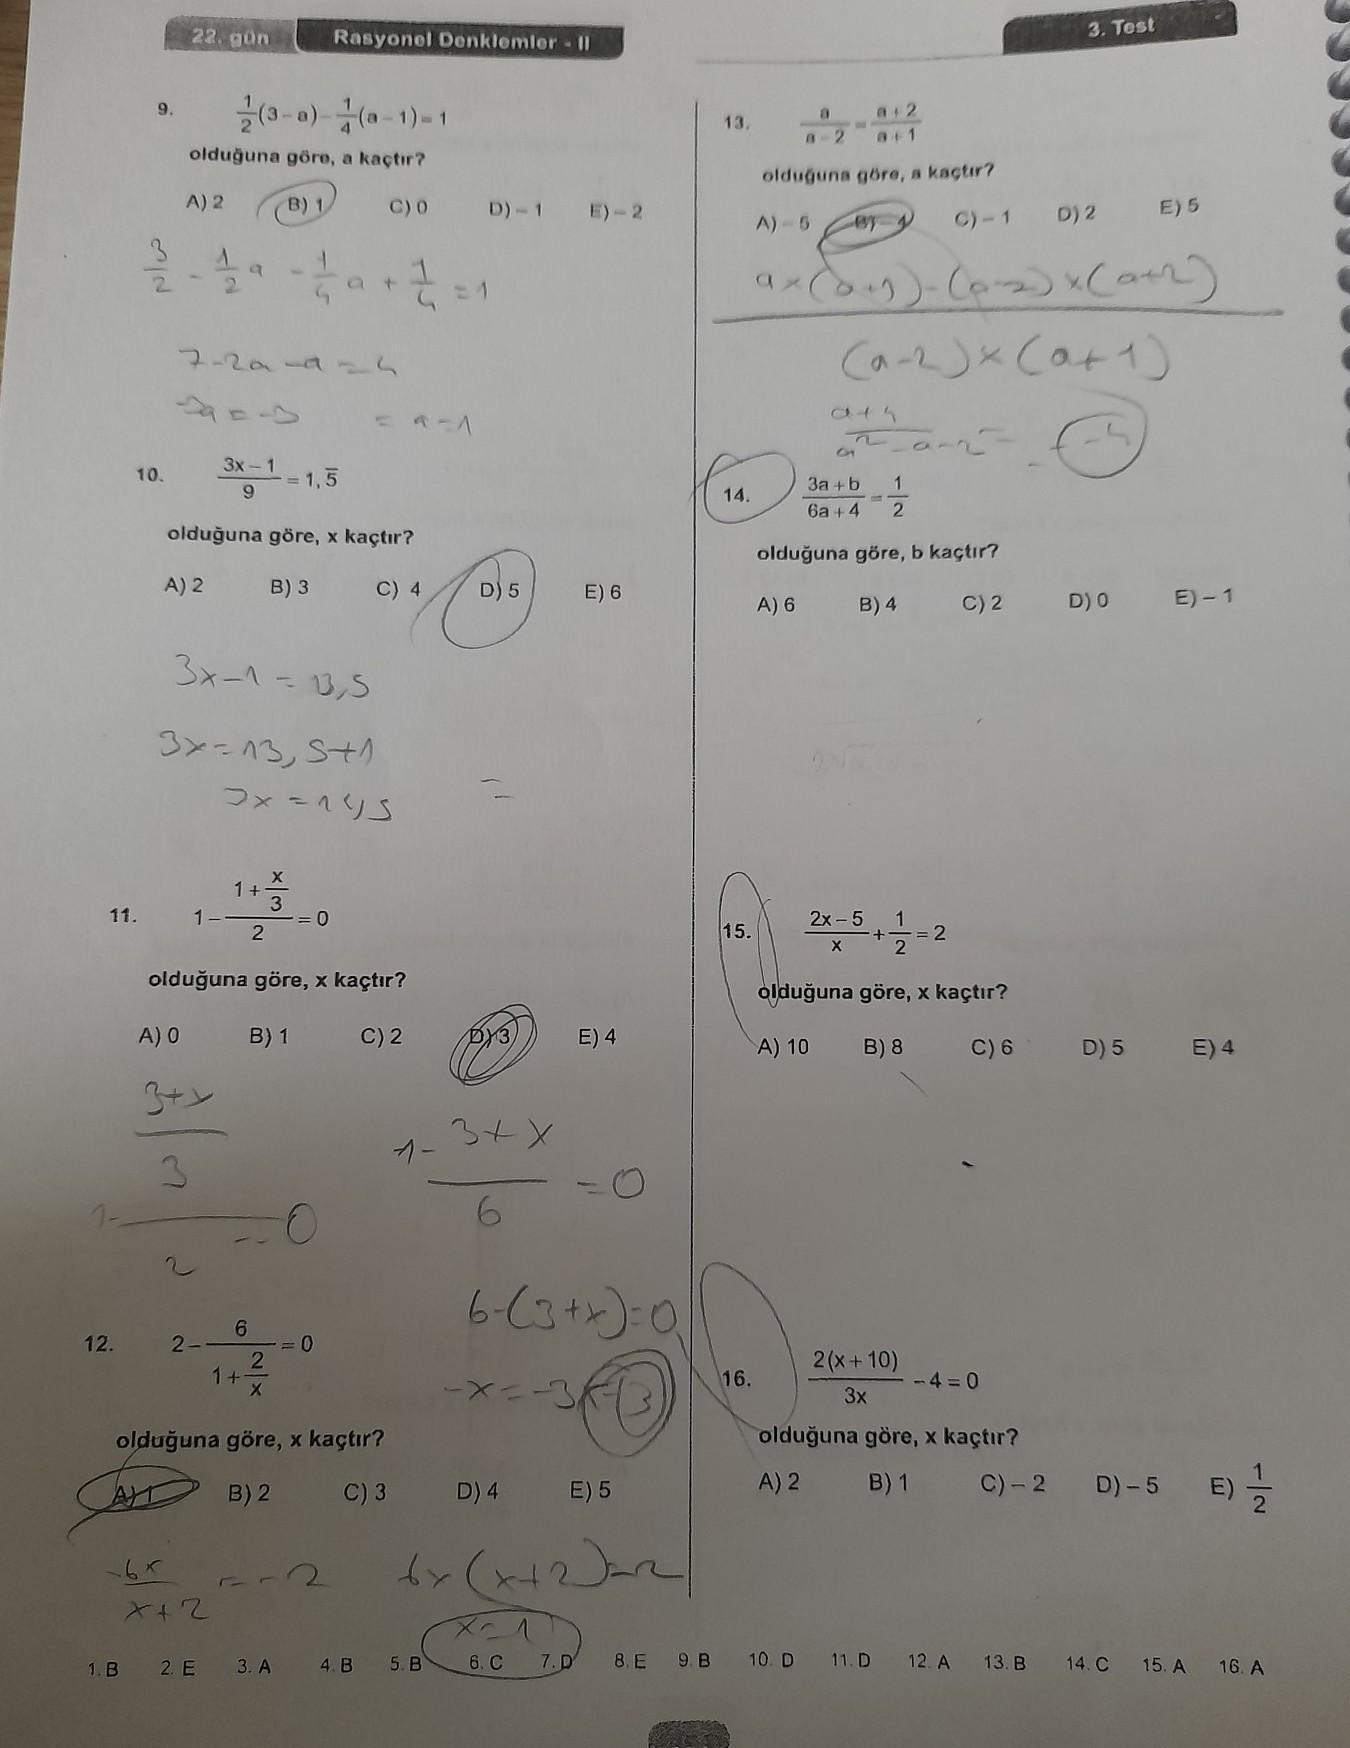 22. gün Rasyonel Denklemler - II
3. Test
9. 1/2(3-a)-1/4(a-1)=1
olduğuna göre, a kaçtır?
A) 2 B) 1 C) 0 D) -1 E) -2
3/2 - 1/2 a - 1/4 a + 1/4 = 1
7-2a-a=4
-3a=-3 = a=1
10. (3x-1)/9 = 1,5̅
olduğuna göre, x kaçtır?
A) 2 B) 3 C) 4 D) 5 E) 6
3x-1=13,5
3x=13,5+1
3x=14,5 =
11. 1-(1+x/3)/2=0
olduğuna göre, x kaçtır?
A) 0 B) 1 C) 2 D) 3 E) 4
1-((3+x)/3)/2=0
1-(3+x)/6=0
6-(3+x)=0
-x=-3
12. 2-6/(1+2/x)=0
olduğuna göre, x kaçtır?
A) 1 B) 2 C) 3 D) 4 E) 5
-6x/(x+2)=-2
6x(x+2)=2
x=1
13. a/(a-2)=(a+2)/(a+1)
olduğuna göre, a kaçtır?
A) -5 B) -4 C) -1 D) 2 E) 5
a×(a+1)-(a-2)×(a+2)
(a-2)×(a+1)
(a+4)/(a²-a-2) = -4
14. (3a+b)/(6a+4)=1/2
olduğuna göre, b kaçtır?
A) 6 B) 4 C) 2 D) 0 E) -1
15. (2x-5)/x+1/2=2
olduğuna göre, x kaçtır?
A) 10 B) 8 C) 6 D) 5 E) 4
16. 2(x+10)/3x-4=0
olduğuna göre, x kaçtır?
A) 2 B) 1 C) -2 D) -5 E) 1/2
1. B 2. E 3. A 4. B 5. B 6. C 7. D 8. E 9. B 10. D 11. D 12. A 13. B 14. C 15. A 16. A